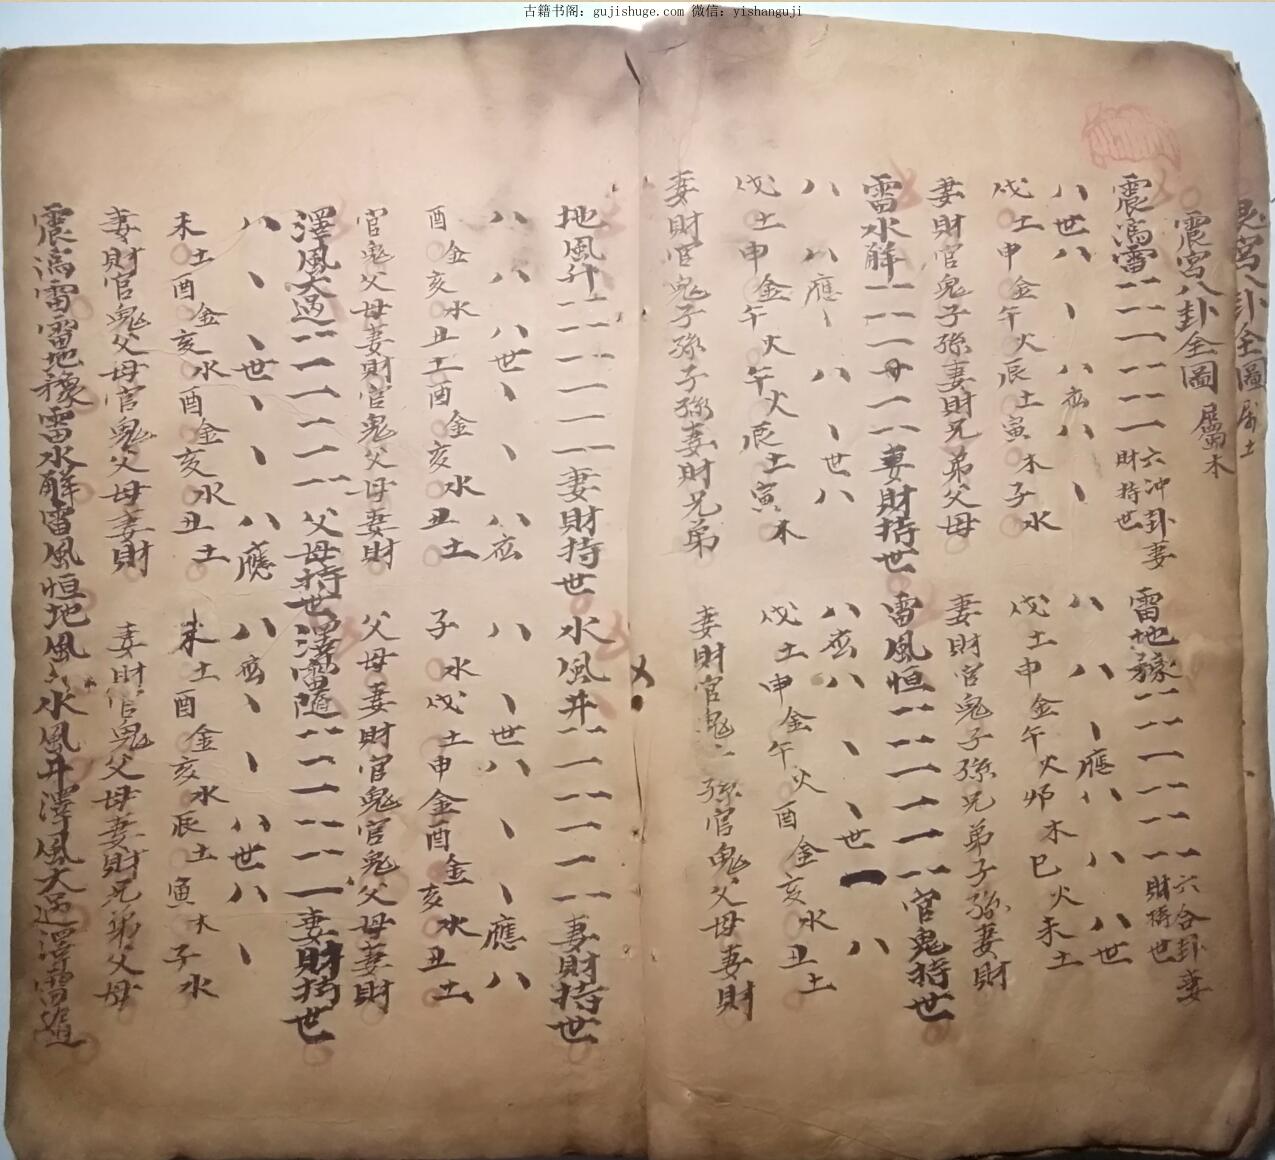 古籍书阁：gujishuge.com 微信：yishanguji
宮八卦全圖 屬土
震宮八卦全圖 屬木
震為雷 六冲卦妻財持世
八世八 丶 八应八 丶
戌土申金午火辰土寅木子水
妻財官鬼子孫妻財兄弟父母
雷地豫 六合卦妻財持世
八 八 丶應八 八 八世
戌土申金午火卯木巳火未土
妻財官鬼子孫兄弟子孫妻財
雷水解 妻財持世
八 八應丶 八 丶世八
戌土申金午火午火辰土寅木
妻財官鬼子孫子孫妻財兄弟
雷風恒 官鬼持世
八应八 丶 丶世 一 八
戌土申金午火酉金亥水丑土
妻財官鬼 孫官鬼父母妻財
地風升 妻財持世
八 八 八世丶 丶 八应
酉金亥水丑土酉金亥水丑土
官鬼父母妻財官鬼父母妻財
水風井 妻財持世
八 丶世八 丶 丶應八
子水戌土申金酉金亥水丑土
父母妻財官鬼官鬼父母妻財
澤風大過 父母持世
八 丶 丶世丶 丶 八應
未土酉金亥水酉金亥水丑土
妻財官鬼父母官鬼父母妻財
澤雷隨 妻財持世
八应丶 丶 八世八 丶
未土酉金亥水辰土寅木子水
妻財官鬼父母妻財兄弟父母
震為雷雷地豫雷水解雷風恒地風 水風井澤風大過澤雷隨